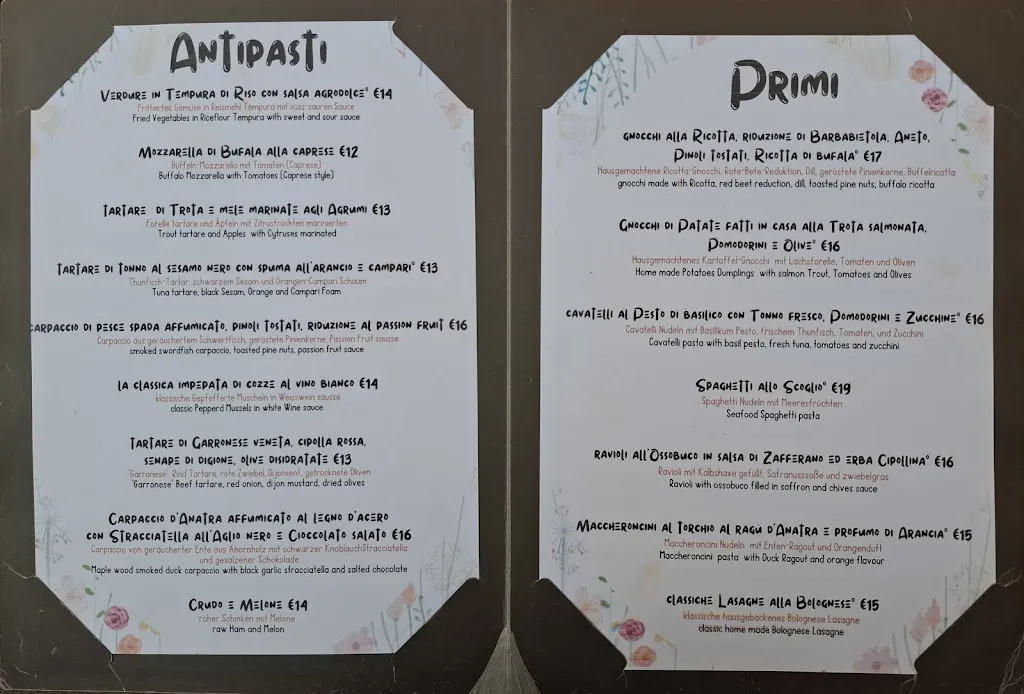 Antipasti
Verdure in Tempura di Riso con salsa agrodolce° €14
Frittiertes Gemüse in Reismehl Tempura mit süss-sauren Sauce
Fried Vegetables in Riceflour Tempura with sweet and sour sauce
Mozzarella di Bufala alla caprese €12
Büffeln-Mozzarella mit Tomaten (Caprese)
Buffalo Mozzarella with Tomatoes (Caprese style)
tartare di Trota e mele marinate agli Agrumi €13
Forelle tartare und Äpfeln mit Zitrusfrüchten marinierten
Trout tartare and Apples with Cytruses marinated
tartare di tonno al sesamo nero con spuma all'arancio e campari° €13
Thunfisch-Tartar, schwarzem Sesam und Orangen-Campari Schaum
Tuna tartare, black Sesam, Orange and Campari Foam
carpaccio di pesce spada affumicato, pinoli tostati, riduzione al passion fruit €16
Carpaccio aus geräuchertem Schwertfisch, geröstete Pinienkerne, Passion Fruit sausse
smoked swordfish carpaccio, toasted pine nuts, passion fruit sauce
la classica impepata di cozze al vino bianco €14
klassische Gepfefferte Muscheln in Weisswein sausse
classic Pepperd Mussels in white Wine sauce
tartare di Garronese veneta, cipolla rossa,
senape di digione, olive disidratate €13
"Garronese" Rind Tartare, rote Zwiebel, Dijonsenf, getrocknete Oliven
"Garronese" Beef tartare, red onion, dijon mustard, dried olives
Carpaccio d'Anatra affumicato al legno d'acero
con Stracciatella all'Aglio nero e Cioccolato salato €16
Carpaccio von geräucherter Ente aus Ahornholz mit schwarzer KnoblauchStracciatella
und gesalzener Schokolade
Maple wood smoked duck carpaccio with black garlic stracciatella and salted chocolate
Crudo e Melone €14
roher Schinken mit Melone
raw Ham and Melon
Primi
gnocchi alla Ricotta, riduzione di Barbabietola, Aneto,
Pinoli tostati, Ricotta di bufala° €17
Hausgemachtene Ricotta-Gnocchi, Rote-Bete-Reduktion, Dill, geröstete Pinienkerne, Büffelricotta
gnocchi made with Ricotta, red beet reduction, dill, toasted pine nuts, buffalo ricotta
Gnocchi di Patate fatti in casa alla Trota salmonata,
Pomodorini e Olive° €16
Hausgemachtenes Kartoffel-Gnocchi mit Lachsforelle, Tomaten und Oliven
Home made Potatoes Dumplings with salmon Trout, Tomatoes and Olives
cavatelli al Pesto di basilico con Tonno fresco, Pomodorini e Zucchine° €16
Cavatelli Nudeln mit Basilikum Pesto, frischem Thunfisch, Tomaten, und Zucchini
Cavatelli pasta with basil pesto, fresh tuna, tomatoes and zucchini
Spaghetti allo Scoglio° €19
Spaghetti Nudeln mit Meeresfrüchten
Seafood Spaghetti pasta
ravioli all'Ossobuco in salsa di Zafferano ed erba Cipollina° €16
Ravioli mit Kalbshaxe gefüllt, Safranusssoße und zwiebelgras
Ravioli with ossobuco filled in saffron and chives sauce
Maccheroncini al torchio al ragù d'Anatra e profumo di Arancia° €15
Maccheroncini Nudeln mit Enten-Ragout und Orangenduft
Maccheroncini pasta with Duck Ragout and orange flavour
classiche Lasagne alla Bolognese° €15
klassische hausgebackenes Bolognese Lasagne
classic home made Bolognese Lasagne